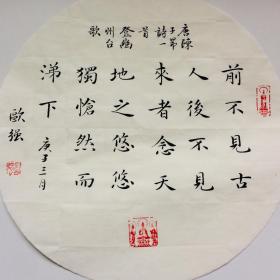 唐陳
子昂
詩一
首
登幽
州台
歌
前不見古
人後不見
來者念天
地之悠悠
獨愴然而
涕下
庚子三月
歐强